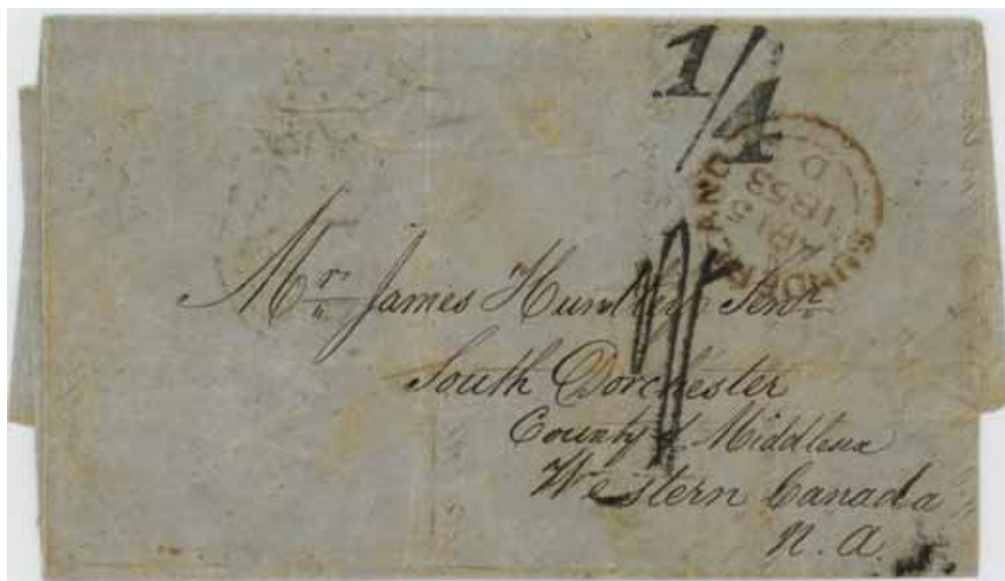 1/4
SUNDERLAND
D
AP 15
1853
Mr. James Huntley Senr.
South Dorchester
County of Middlesex
Western Canada
N. A.